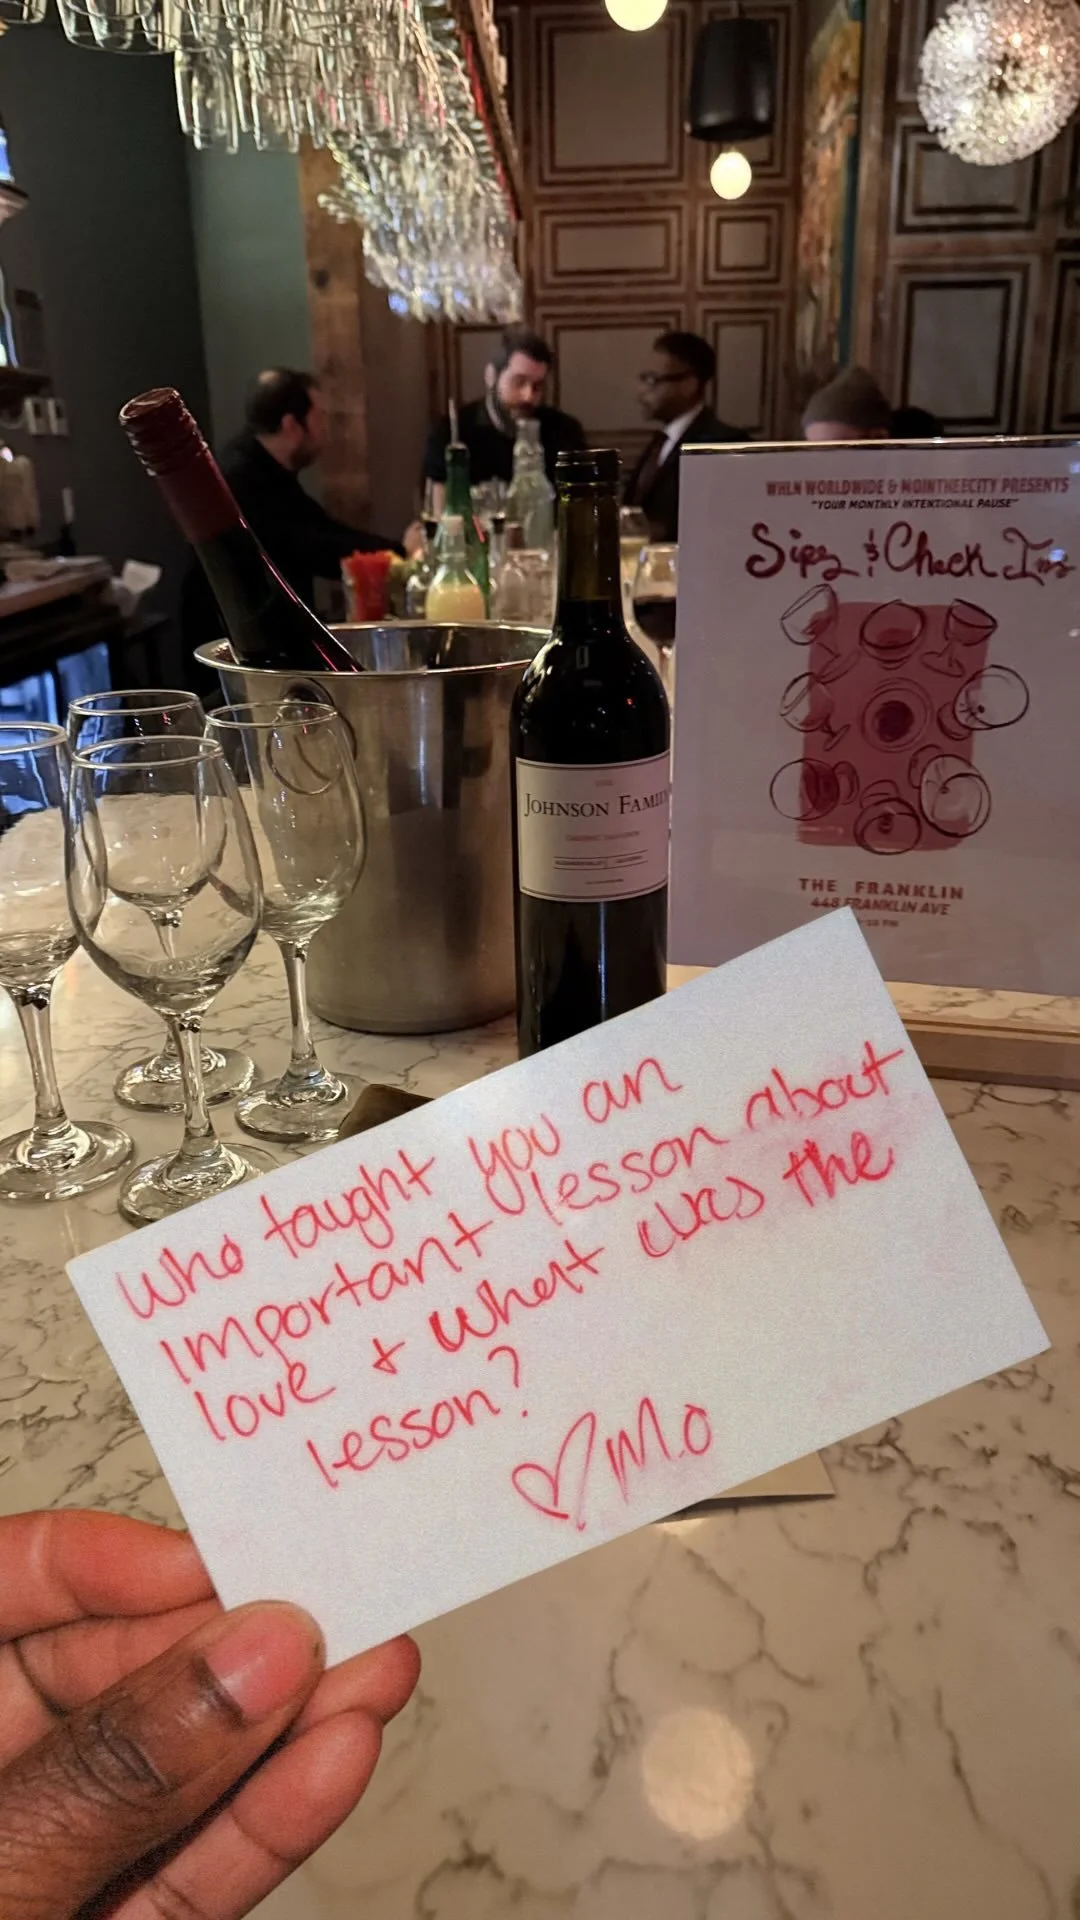 WHLN WORLDWIDE & MOINTHEECITY PRESENTS
"YOUR MONTHLY INTENTIONAL PAUSE"
Sips & Check Ins
THE FRANKLIN
448 FRANKLIN AVE
PM
JOHNSON FAMILY
CABERNET SAUVIGNON
who taught you an
important lesson about
love + what was the
lesson?
♡ Mo